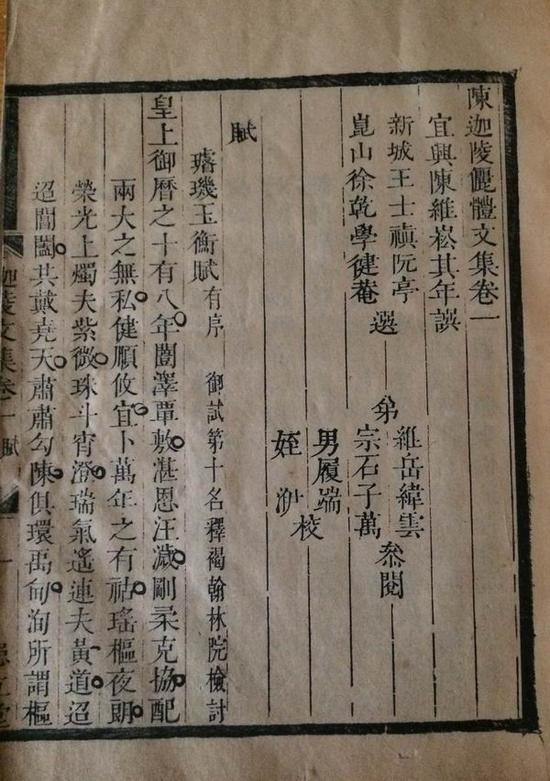 陳迦陵儷體文集卷一
宜興陳維崧其年譔
新城王士禛阮亭
崑山徐乾學健菴
選
弟
維岳緯雲
宗石子萬
叅閱
男履端
姪
校
賦
璿璣玉衡賦有序 御試第十名釋褐翰林院檢討
皇上御曆之十有八年闓澤覃敷湛恩汪濊剛柔克協配
兩大之無私健順攸宜卜萬年之有祜瑤樞夜朗
榮光上燭夫紫微珠斗宵澄瑞氣遙連夫黃道迢
迢閶闔共戴堯天肅肅勾陳俱環禹甸洵所謂樞
迦陵文集卷一 賦 一